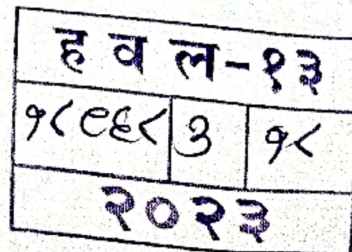 ह व ल-१३
१८९६८ ३ १८
२०२३